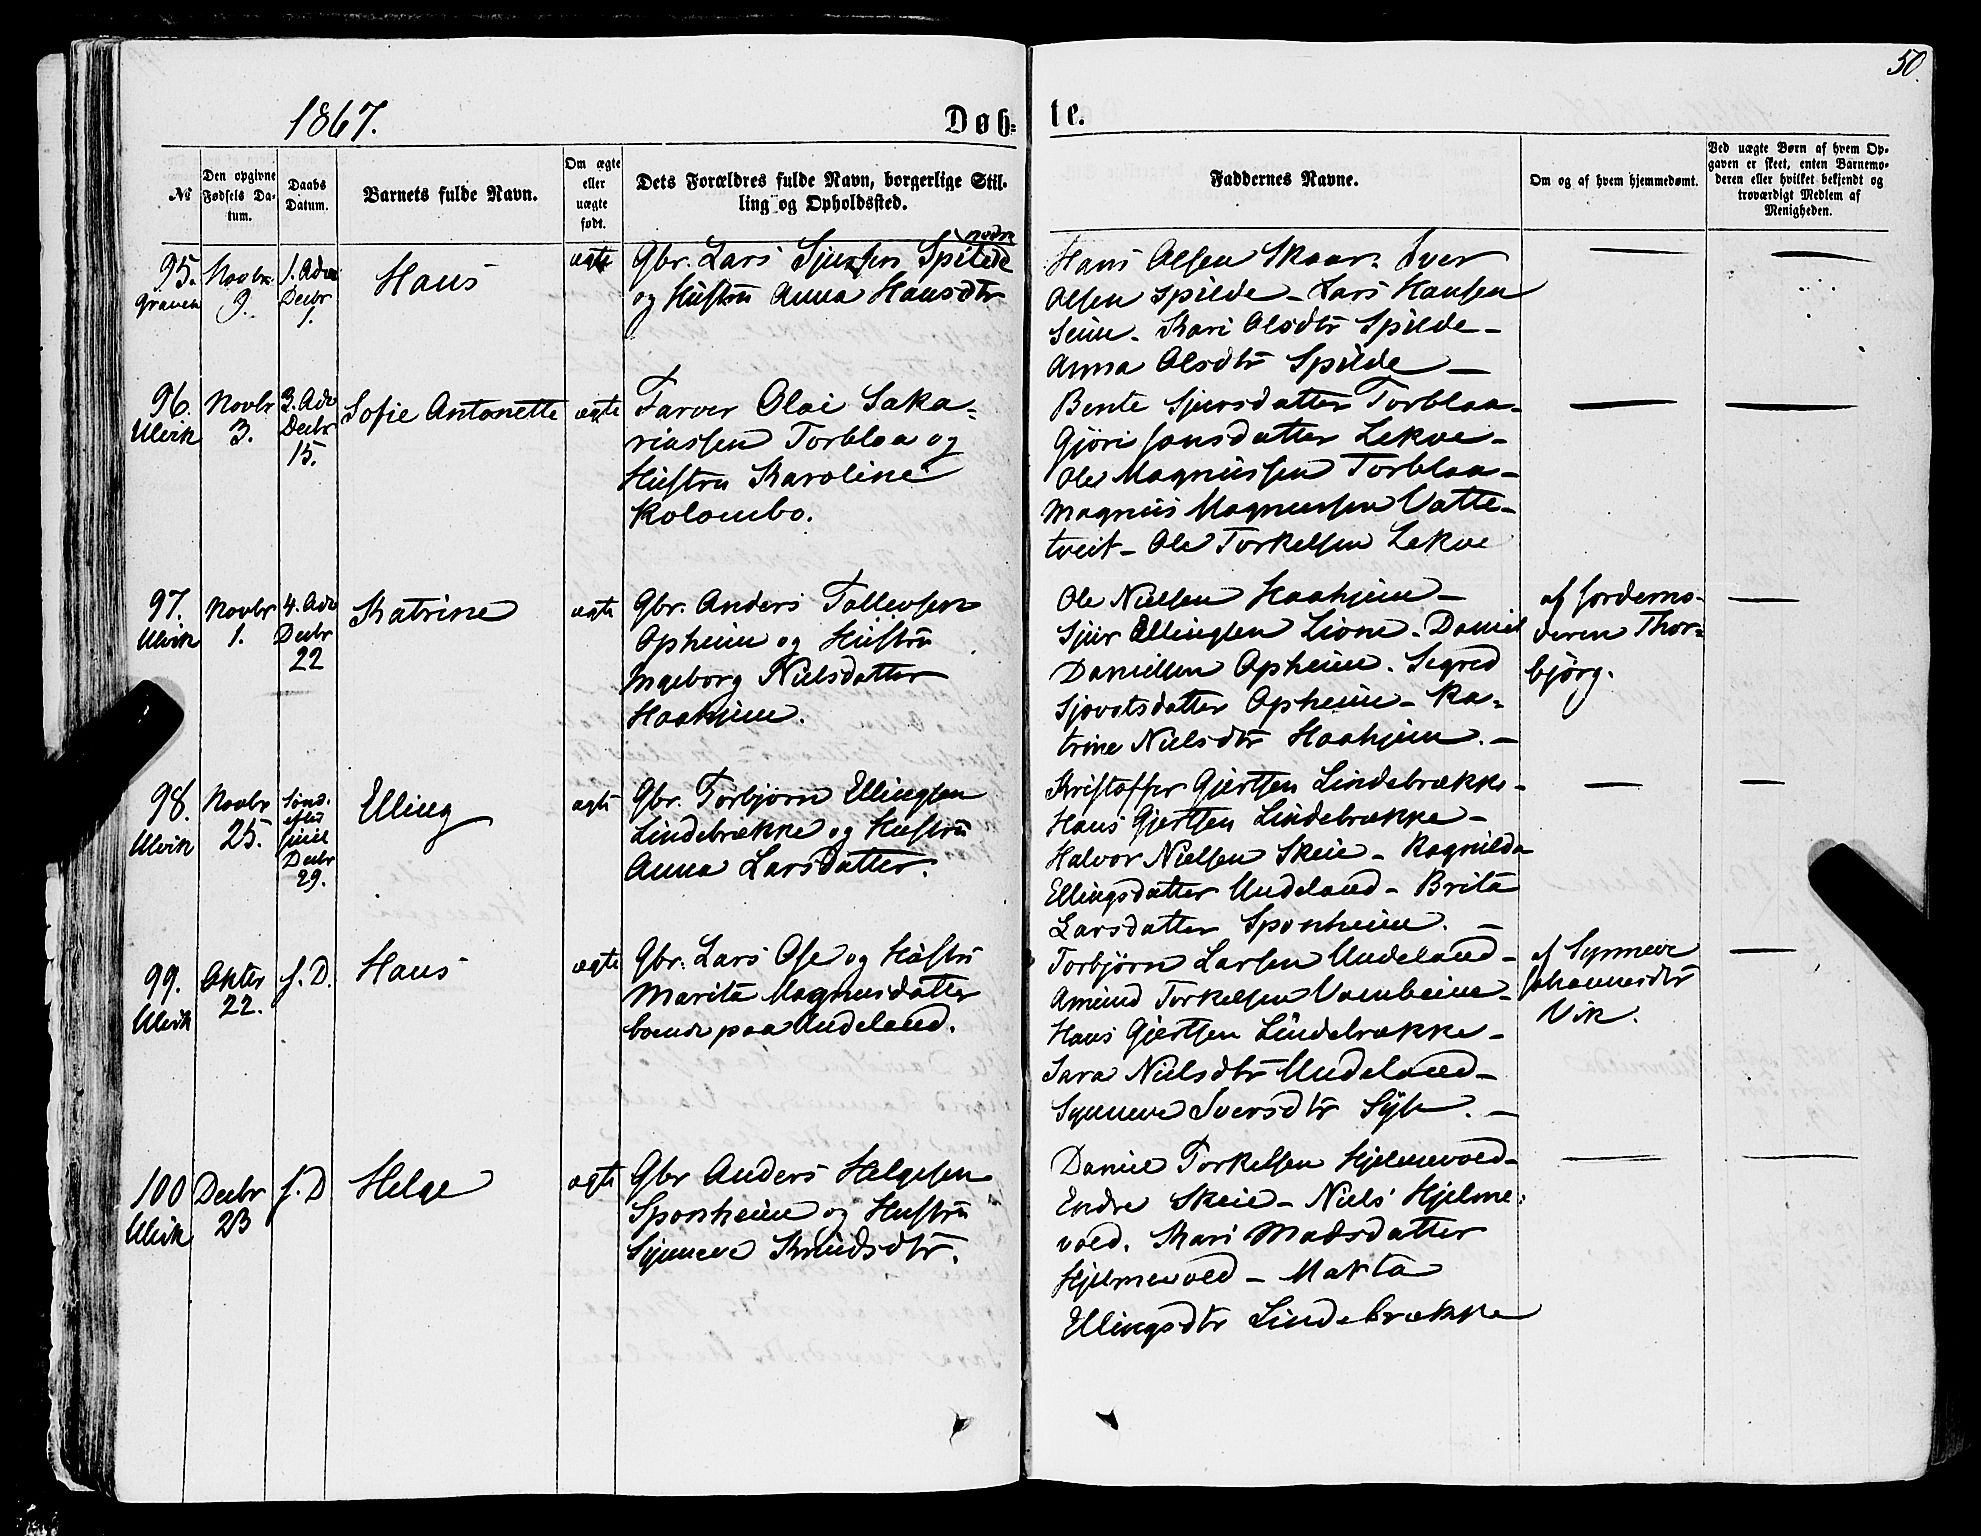 50.
1867.
Døb-
te.
№
Den opgivne Fødsels Da-
tum.
Daabs
Datum.
Barnets fulde Navn.
Om ægte
eller
uægte
født.
Dets Forældres fulde Navn, borgerlige Stil-
ling og Opholdssted.
Faddernes Navne.
Om og af hvem hjemmedømt.
Ved uægte Børn af hvem Op-
gaven er skeet, enten Barnemo-
deren eller hvilket bekjendt og
troværdigt Medlem af
Menigheden.
95.
Graven
Novbr.
9.
1. Adv
Decbr
1.
Hans
ægte
Gbr. Lars Sjursen Spilde nedre
og Hustru Anna Hansdtr
Hans Olsen Skaar. Iver
Olsen Spilde - Lars Hansen
Seim. Kari Olsdtr Spilde -
Anna Olsdtr Spilde -
96.
Ulvik
Novbr
3.
3. Adv
Decbr
15.
Sofie Antonette
ægte
Farver Olai Saka-
riassen Torblaa og
Hustru Karoline
Kolombo.
Bente Sjursdatter Torblaa -
Gjøri Jonsdatter Lekve -
Ole Magnussen Torblaa -
Magnus Magnussen Vatte-
tveit - Ole Torkelsen Lekve
97.
Ulvik
Novbr
1.
4. Adv
Decbr
22
Katrine
ægte
Gbr. Anders Tollevsen
Opheim og Hustru
Ingeborg Nielsdatter
Haahjem.
Ole Nielsen Haahjem -
Sjur Ellingsen Lione - Daniel
Danielsen Opheim. Segred
Sjovatsdatter Opheim - Ka-
trine Nielsdtr Haahjem. -
af Jordemo-
deren Thor-
bjørg.
98.
Ulvik
Novbr
25.
Sønd.
efter
Juul
Decbr
29.
Elling
ægte
Gbr. Torbjørn Ellingsen
Lindebrække og Hustru
Anna Larsdatter.
Kristoffer Gjertsen Lindebrække -
Hans Gjertsen Lindebrække -
Halvor Nielsen Skeie - Ragnilda
Ellingsdatter Undeland - Brita
Larsdatter Sponheim. -
99.
Ulvik
Okter
22.
f. D.
Hans
ægte
Gbr. Lars Ose og Hustru
Marita Magnusdatter
boende paa Undeland.
Torbjørn Larsen Undeland -
Amund Torkelsen Vambeim -
Hans Gjertsen Lindebrække -
Sara Nielsdtr Undeland -
Synneve Iversdtr Sÿse. -
af Synneve
Johannesdtr
Vik.
100
Ulvik
Decbr
23
f. D
Helge
ægte
Gbr Anders Helgesen
Sponheim og Hustru
Synneve Knudsdtr.
Daniel Torkelsen Hjelmevold -
Endre Skeie - Niels Hjelme-
vold. Kari Madsdatter
Hjelmevold - Marta
Ellingsdtr Lindebrække